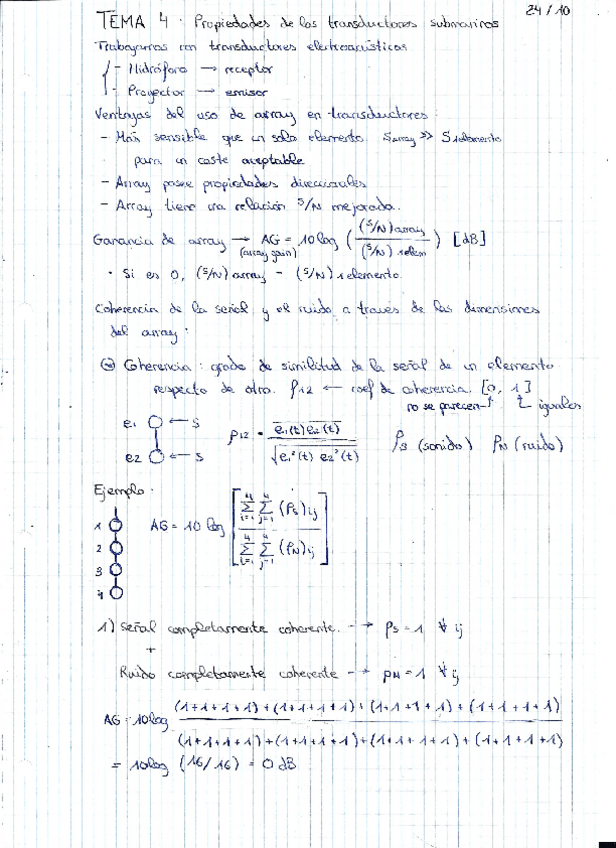 24/10
TEMA 4. Propiedades de los transductores submarinos
Trabajamos con transductores electroacústicos
- Hidrófono → receptor
- Proyector → emisor
Ventajas del uso de array en transductores:
- Más sensible que un solo elemento. Sarray >> S1elemento
para un coste aceptable
- Array posee propiedades direccionales
- Array tiene una relación S/N mejorada.
Ganancia de array → AG = 10 log ( (S/N)array / (S/N)1elem ) [dB]
(array gain)
• Si es 0, (S/N)array = (S/N)1elemento.
Coherencia de la señal y el ruido a través de las dimensiones
del array:
Coherencia: grado de similitud de la señal de un elemento
respecto de otro. ρ12 ← coef de coherencia. [0, 1]
no se parecen iguales
e1 ← S
ρ12 = e1(t) e2(t) / √e1²(t) e2²(t) ρS (sonido) ρN (ruido)
e2 ← S
Ejemplo:
1
2
3
4
AG = 10 log [ Σ i=1 4 Σ j=1 4 (ρS)ij / Σ i=1 4 Σ j=1 4 (ρN)ij ]
1) Señal completamente coherente. --→ ρS = 1 ∀ ij
+
Ruido completamente coherente --→ ρN = 1 ∀ ij
AG = 10 log (1+1+1+1)+(1+1+1+1)+(1+1+1+1)+(1+1+1+1) / (1+1+1+1)+(1+1+1+1)+(1+1+1+1)+(1+1+1+1)
= 10 log (16/16) = 0 dB